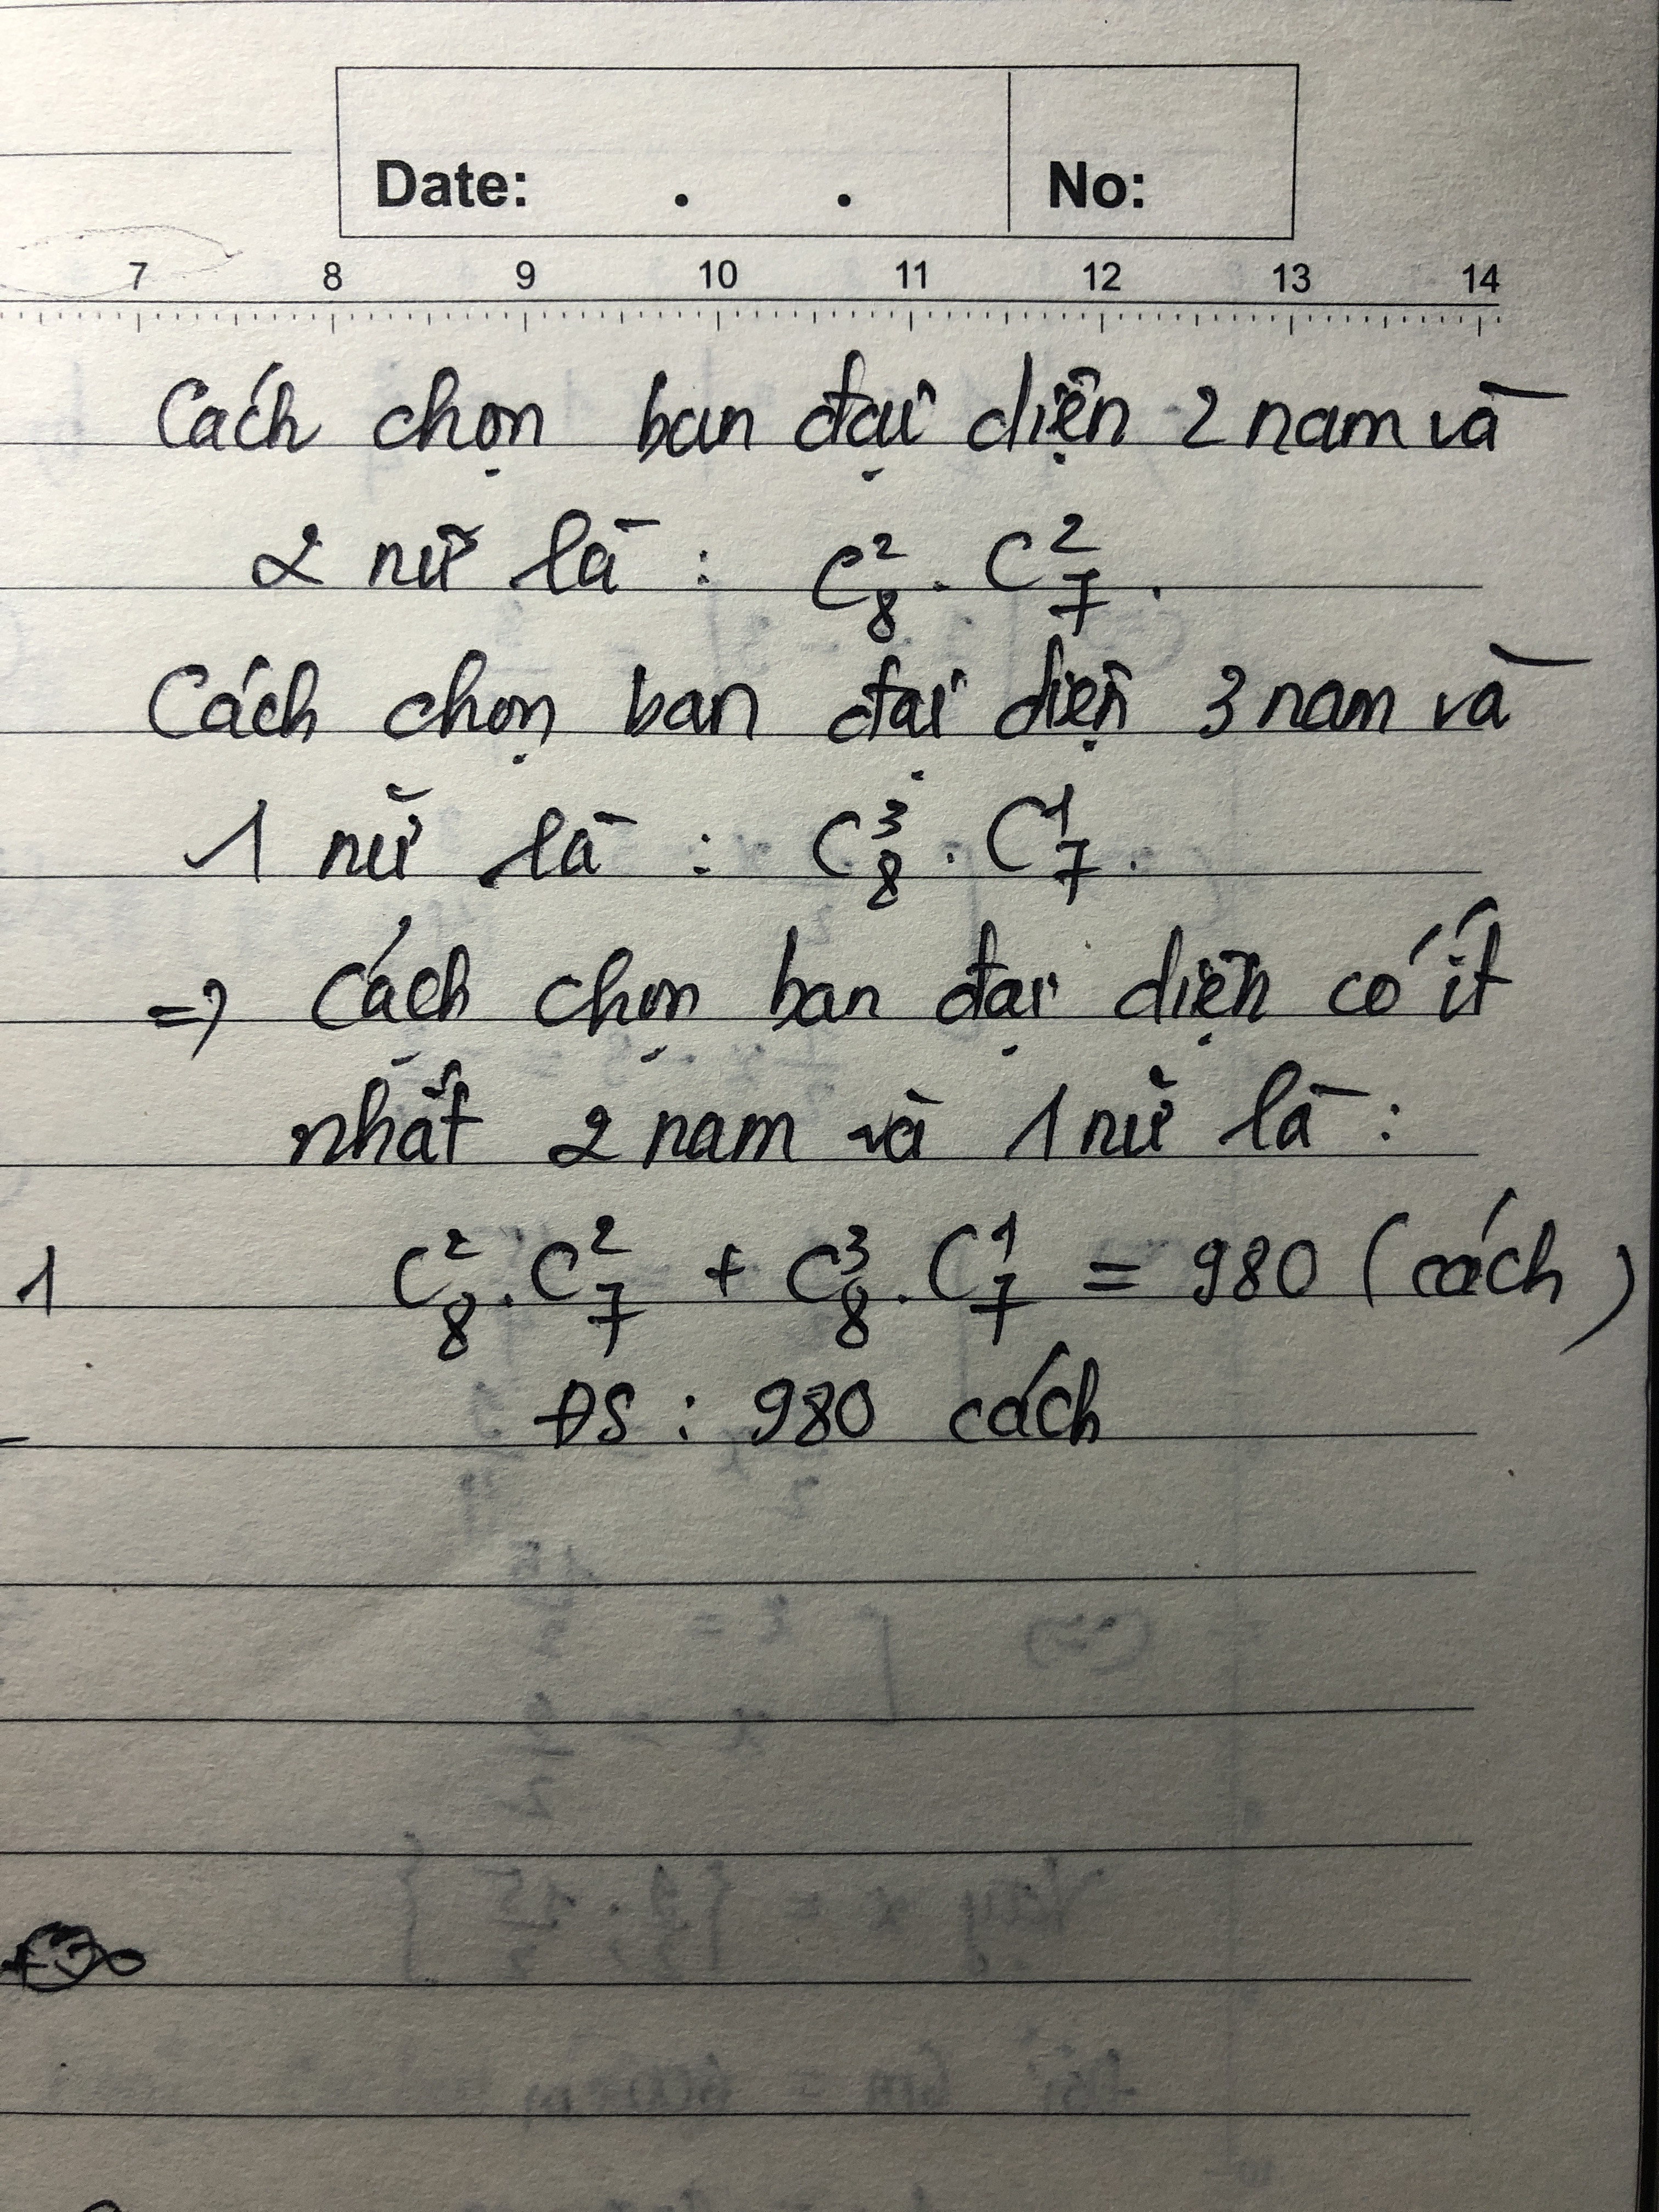 Date: . . No:
7 8 9 10 11 12 13 14
Cách chọn ban đại diện 2 nam và
2 nữ là : C²₈ . C²₇ .
Cách chọn ban đại diện 3 nam và
1 nữ là : C³₈ . C¹₇ .
=> Cách chọn ban đại diện có ít
nhất 2 nam và 1 nữ là :
1 C²₈ . C²₇ + C³₈ . C¹₇ = 980 ( cách )
ĐS : 980 cách